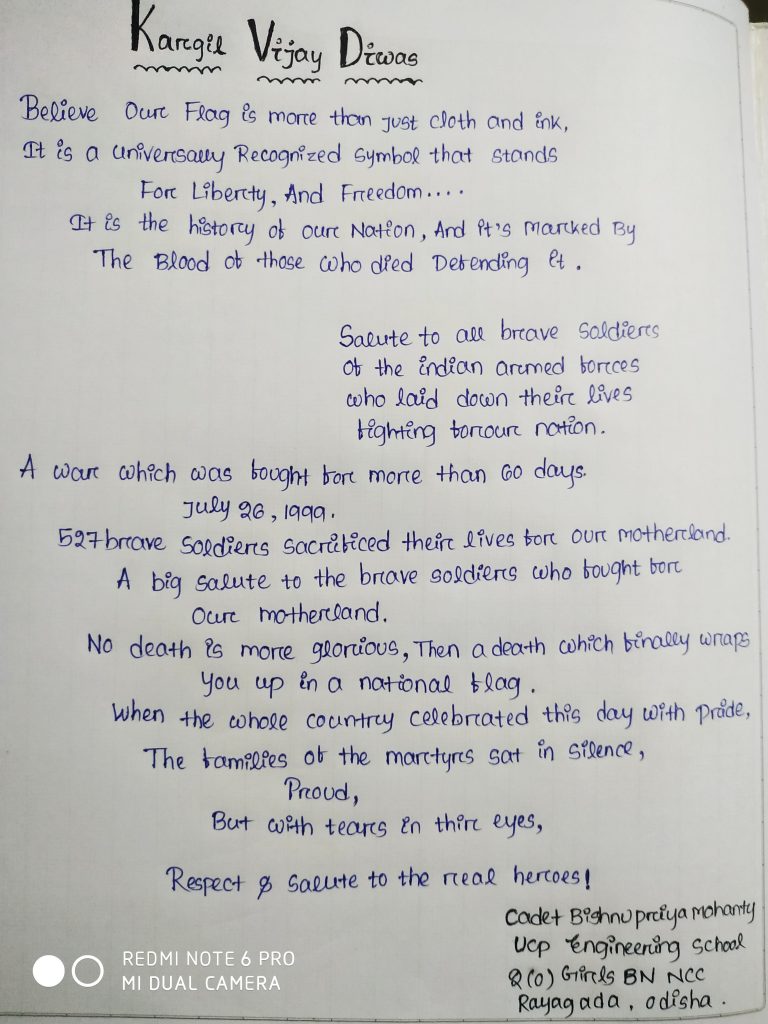 Kargil Vijay Diwas
Believe Our Flag is more than just cloth and ink,
It is a universally Recognized symbol that stands
For Liberty, And Freedom....
It is the history of our Nation, And it's marked By
The Blood of those who died Defending it.
Salute to all brave soldiers
of the indian armed forces
who laid down their lives
fighting for our nation.
A war which was fought for more than 60 days.
July 26, 1999.
527 brave soldiers sacrificed their lives for our motherland.
A big salute to the brave soldiers who fought for
Our motherland.
No death is more glorious, Then a death which finally wraps
you up in a national flag.
When the whole country celebrated this day with pride,
The families of the martyrs sat in silence,
Proud,
But with tears in thir eyes,
Respect & salute to the real heroes!
Cadet Bishnupriya Mohanty
UCP Engineering School
2(O) Girls BN NCC
Rayagada, Odisha.
REDMI NOTE 6 PRO
MI DUAL CAMERA